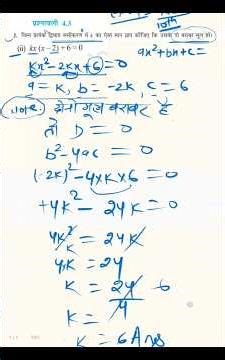 10th
प्रश्नावली 4.3
2. निम्न प्रत्येक द्विघात समीकरण में k का ऐसा मान ज्ञात कीजिए कि उसके दो बराबर मूल हों।
(ii) kx (x – 2) + 6 = 0
ax²+bx+c=
kx²-2kx+6=0
a=k, b=-2k, c=6
दोनों मूल बराबर है
तो D = 0
b²-4ac = 0
(-2k)²-4×k×6 = 0
+4k²-24k=0
4k² = 24k
4k = 24
k = 24 6
4
k = 6 Ans